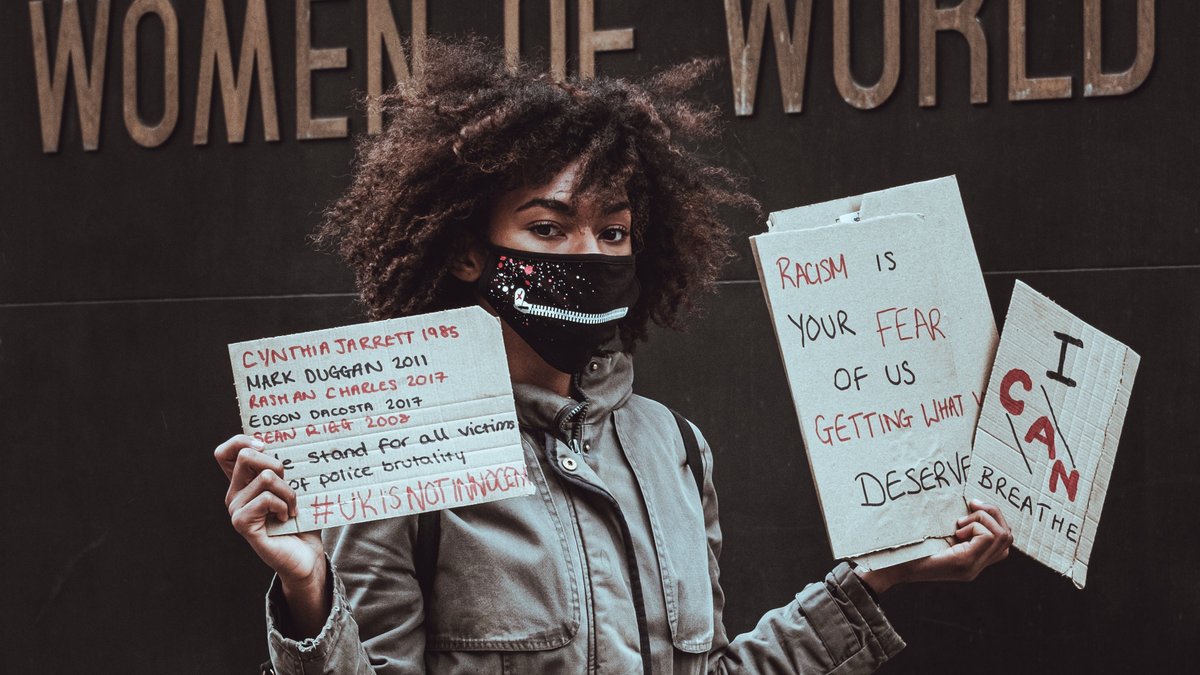 WOMEN OF WORLD
CYNTHIA JARRETT 1985
MARK DUGGAN 2011
RASHAN CHARLES 2017
EDSON DACOSTA 2017
SEAN RIGG 2008
stand for all victims
of police brutality
#UKISNOTINNOCEN
RACISM IS
YOUR FEAR
OF US
GETTING WHAT
DESERVE
I
CAN
BREATHE